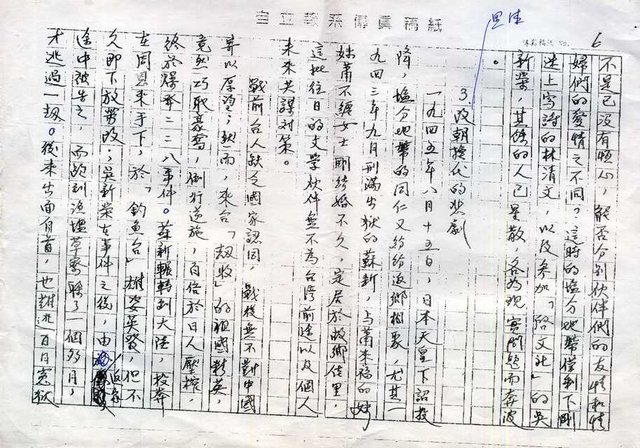 自立報系傳真稿紙
6
不是已沒有恆心，能否分別伙伴們的友情和情
婦們的愛情之不同？這時的塩分地帶僅剩下剛
迷上寫詩的林清文，以及參加「路文社」的吳
新榮，其餘的人已星散，各為現實問題而奔波
。
3 改朝換代的悲劇
一九四五年八月十五日，日本天皇下詔投
降，塩分地帶的同仁又紛紛返鄉相聚，尤其一
九四三年九月刑滿出獄的蘇新，與蕭來福的妹
妹蕭不纏女士剛結婚不久，定居於故鄉佳里，
這批往日的文學伙伴無不為台灣前途以及個人
未來共謀對策。
佳里
戰前台人缺乏國家認同，戰後無不對中國
寄以厚望；然而，來台「劫收」的祖國彩英，
竟然巧取豪奪，倒行逆施，百倍於日人壓榨，
終於爆發二二八事件。蘇新輾轉到大陸投奔
在周恩來手下，於「釣魚台」雄姿英發，但不
久即下放勞改；吳新榮在事件之後，由
途中被告之，而跑到漁塭草寮躲了一個多月，
才逃過一劫。後來出面自首，也難逃百日冤獄